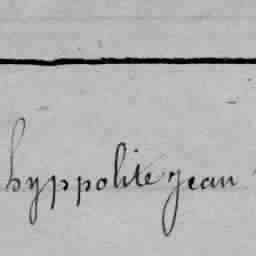 hyppolite jean